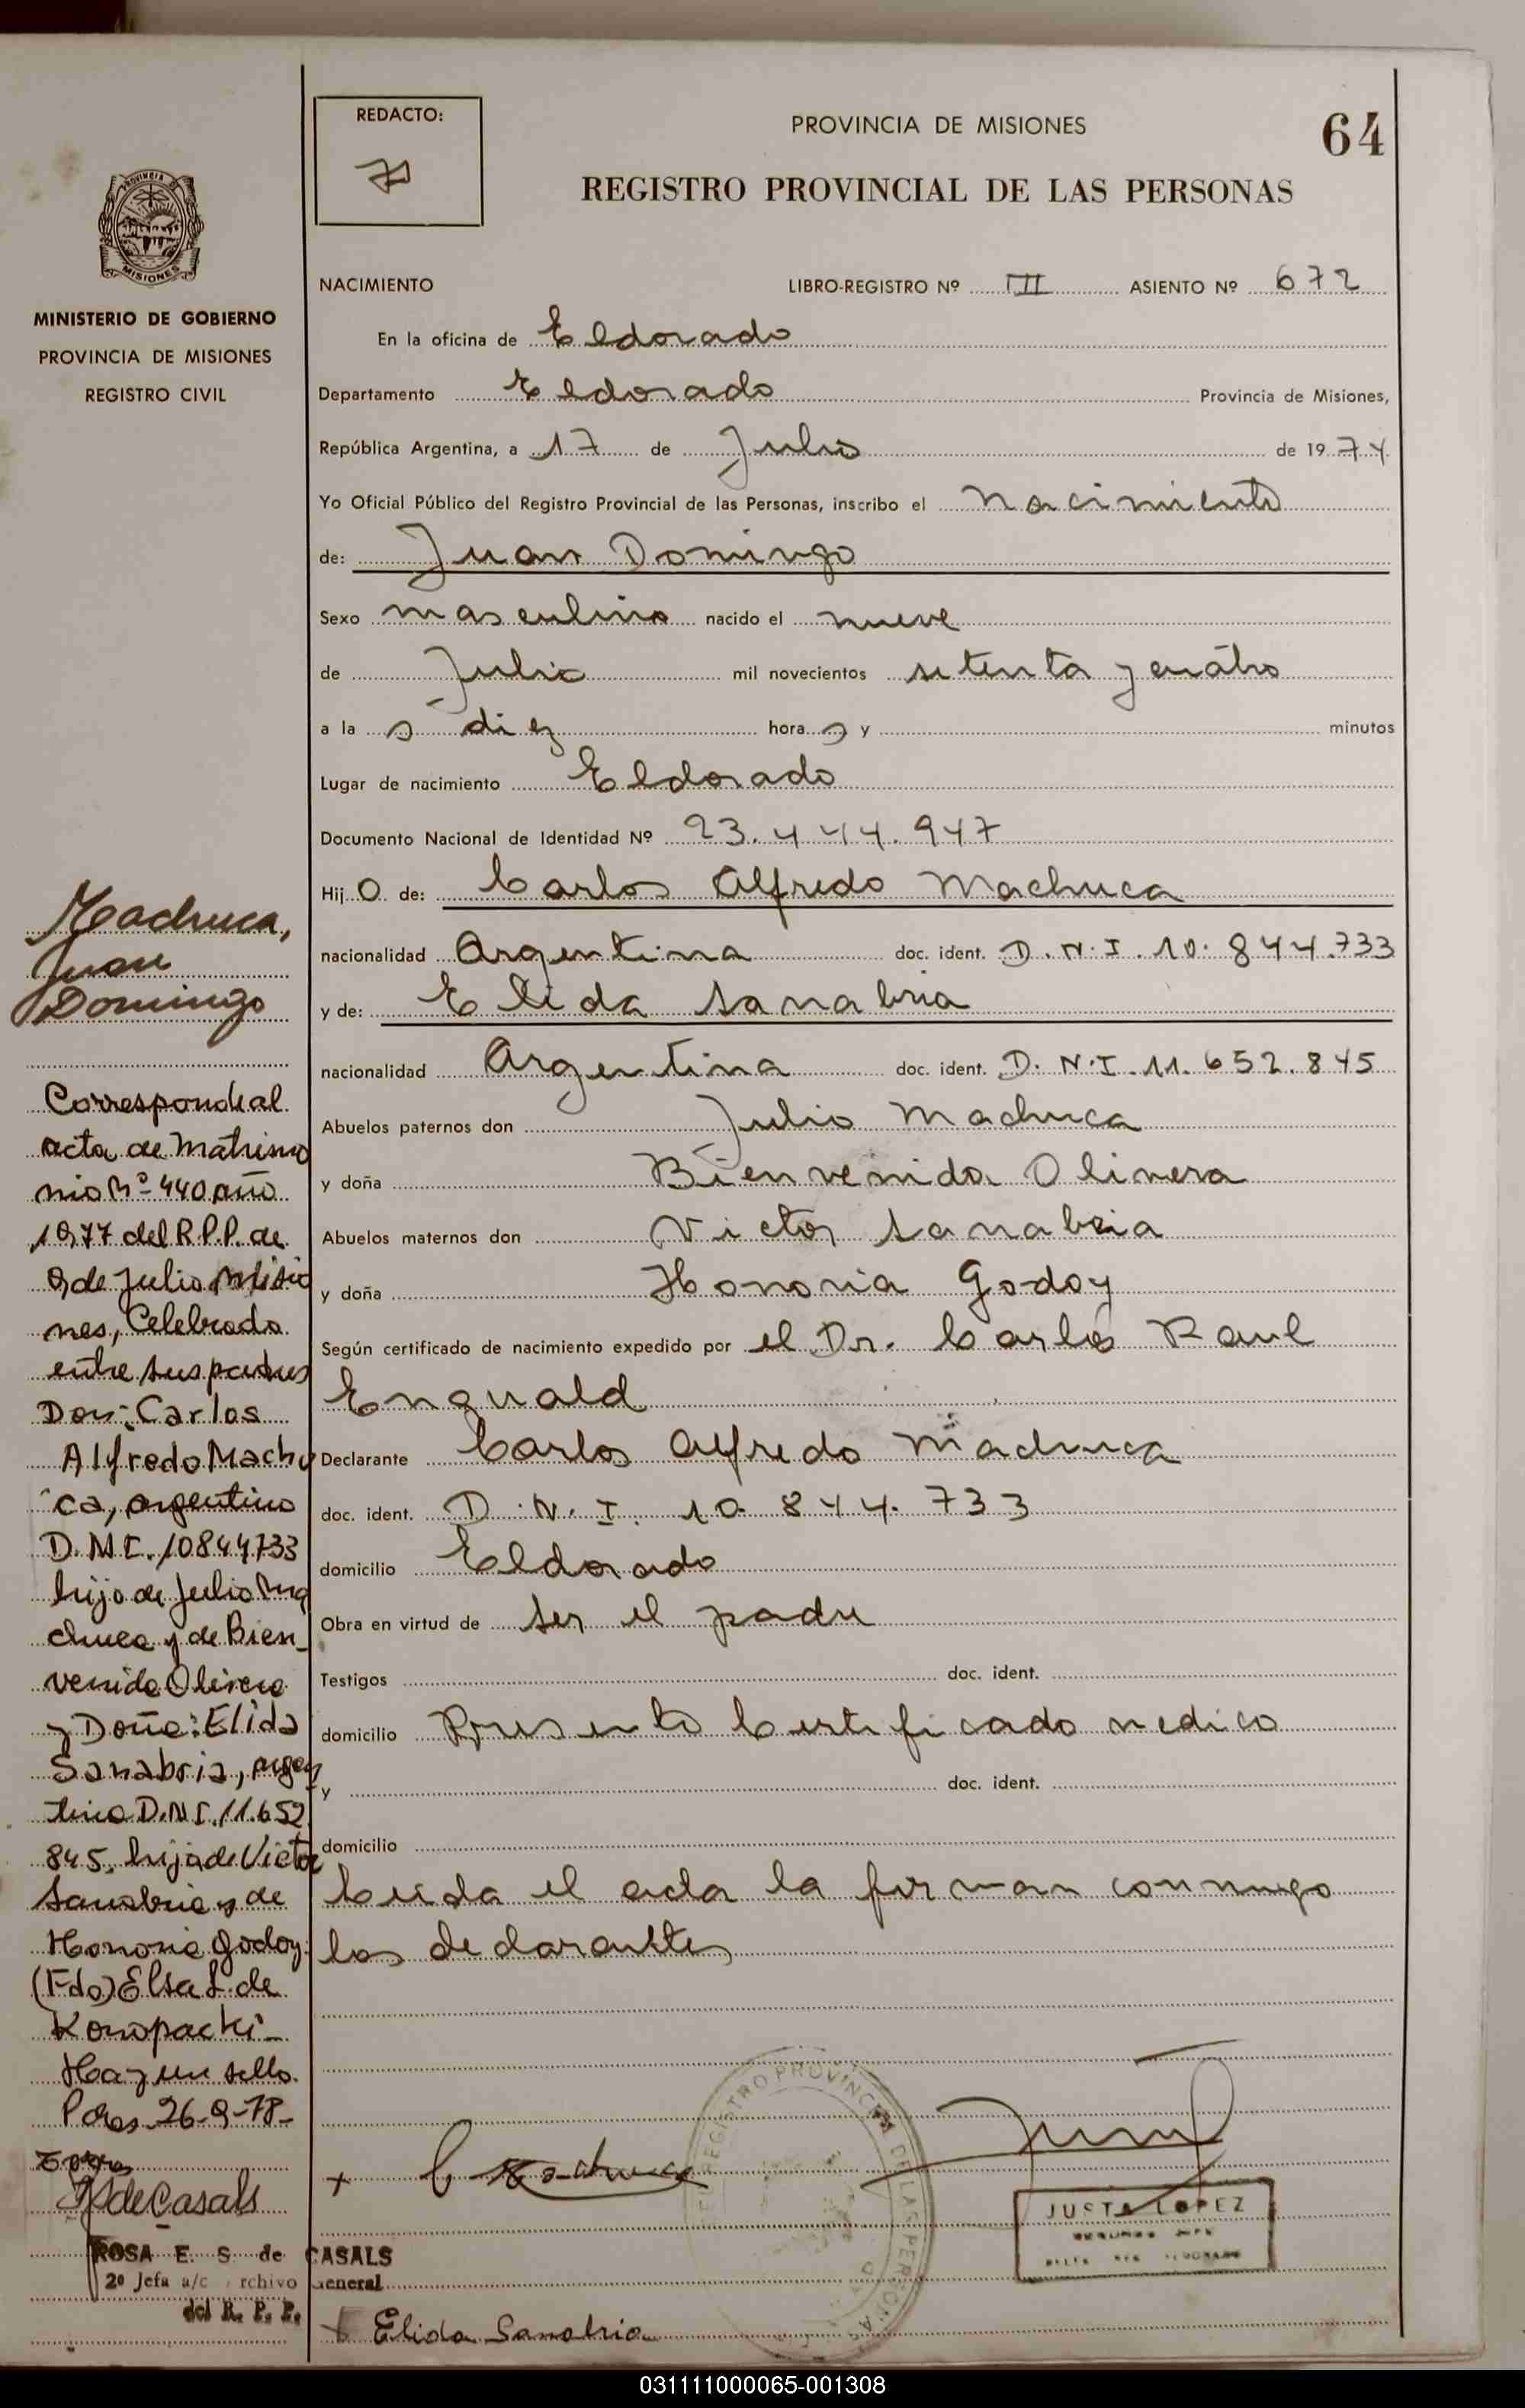 REDACTO:
PROVINCIA DE MISIONES
64
REGISTRO PROVINCIAL DE LAS PERSONAS
PROVINCIA DE
MISIONES
MINISTERIO DE GOBIERNO
PROVINCIA DE MISIONES
REGISTRO CIVIL
NACIMIENTO LIBRO-REGISTRO Nº III ASIENTO Nº 672
En la oficina de Eldorado
Departamento Eldorado Provincia de Misiones,
República Argentina, a 17 de Julio de 1974
Yo Oficial Público del Registro Provincial de las Personas, inscribo el nacimiento
de: Juan Domingo
Sexo masculino nacido el nueve
de Julio mil novecientos setenta y cuatro
a las diez horas y minutos
Lugar de nacimiento Eldorado
Documento Nacional de Identidad Nº 23.444.947
Hijo de: Carlos Alfredo Machuca
nacionalidad Argentina doc. ident. D.N.I. 10.844.733
y de: Elida Sanabria
nacionalidad Argentina doc. ident. D.N.I. 11.652.845
Abuelos paternos don Julio Machuca
y doña Bienvenida Olivera
Abuelos maternos don Victor Sanabria
y doña Honoria Godoy
Según certificado de nacimiento expedido por el Dr. Carlos Raul
Enguald
Declarante Carlos Alfredo Machuca
doc. ident. D.N.I. 10.844.733
domicilio Eldorado
Obra en virtud de ser el padre
Testigos doc. ident.
domicilio Presento Certificado medico
y doc. ident.
domicilio
Leida el acta la firman conmigo
los declarantes
Machuca,
Juan
Domingo
Corresponde al
acta de Matrimo
nio Nº 440 año
1977 del R.P.P. de
9 de Julio Misio
nes, Celebrado
entre sus padres
Don: Carlos
Alfredo Machu
ca, argentino
D.N.I. 10844733
hijo de Julio Ma
chuca y de Bien-
venida Olivera
y Doña: Elida
Sanabria, argen
tina D.N.I. 11.652
845, hija de Victor
Sanabria y de
Honoria Godoy.
(Fdo) Elsa L. de
Konopacki-
Hay un sello.
Pdas 26-9-78-
RS de Casals
ROSA E. S. de CASALS
2º Jefa a/c Archivo General
del R. P. P.
C Machuca
REGISTRO PROVINCIAL DE LAS PERSONAS
JUSTA LOPEZ
Elida Sanabria
031111000065-001308